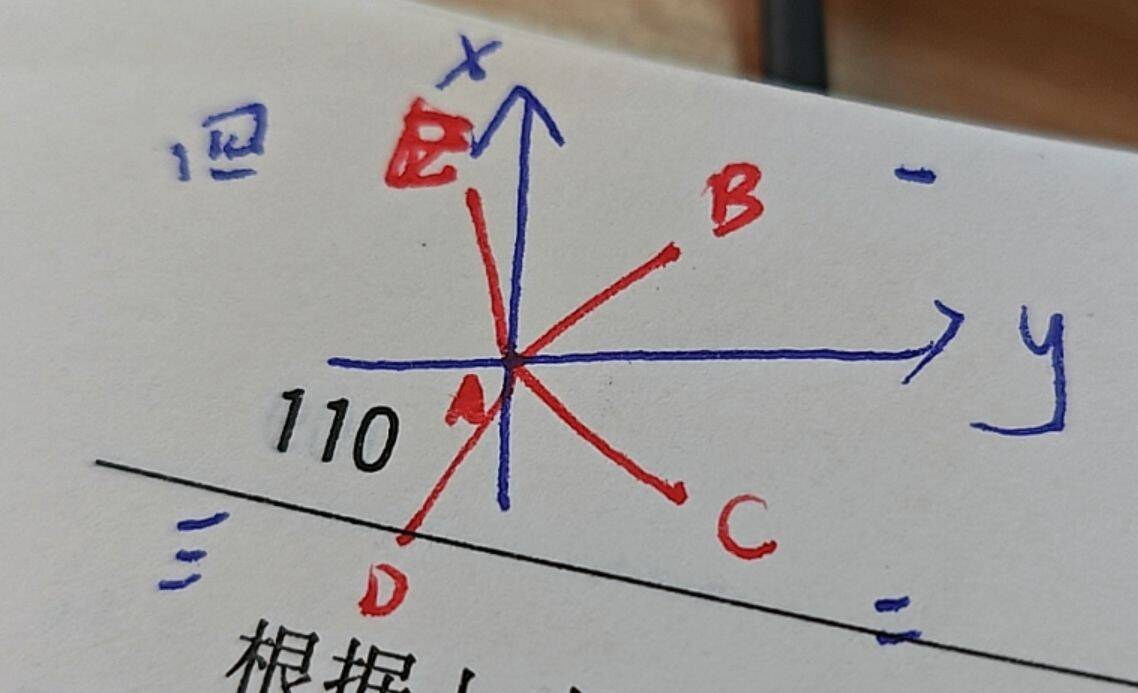 x
四
一
B
y
A
110
C
三
D
二
根据